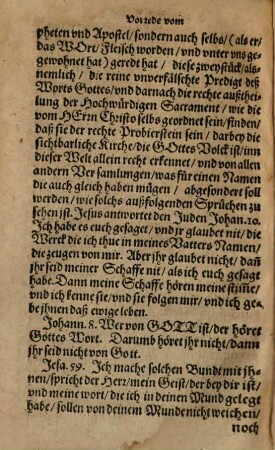 Vorrede vom
pheten vnd Apostel / sondern auch selbs / (als er /
das WOrt / Fleisch worden / vnd vnter vns ge
gewohnet hat) geredt hat / diese zwey stück / als
nemlich / die reine vnuerfälschte Predigt deß
Worts Gottes / vnd darnach die rechte außthei-
lung der Hochwürdigen Sacrament / wie die
vom HErrn Christo selbs geordnet sein / finden /
daß sie der rechte Probierstein sein / darbey die
sichtbarliche Kirche / die GOttes Volck ist / inn
dieser Welt allein recht erkennet / vnd von allen
andern Versamlungen / was für einen Namen
die auch gleich haben mügen / abgesondert soll
werden / wie solchs außfolgenden Sprüchen zu
sehen ist. Jesus antwortet den Juden Johan. 10.
Ich habe es euch gesaget / vnd jr glaubet nit / die
Werck die ich thue in meines Vatters Namen /
die zeugen von mir. Aber jhr glaubet nicht / dañ
jhr seid meiner Schaffe nit / als ich euch gesagt
habe. Dann meine Schaffe hören meine stim̃e /
vnd ich kenne sie / vnd sie folgen mir / vnd ich ge-
be jhnen daß ewige leben.
Johann. 8. Wer von GOTT ist / der höret
Gottes Wort. Darumb höret jhr nicht / dann
jhr seid nicht von Gott.
Jesa. 59. Ich mache solchen Bundt mit jh-
nen / spricht der Herr / mein Geist / der bey dir ist /
vnd meine wort / die ich in deinen Mund gelegt
habe / sollen von deinem Munde nicht weichen /
noch